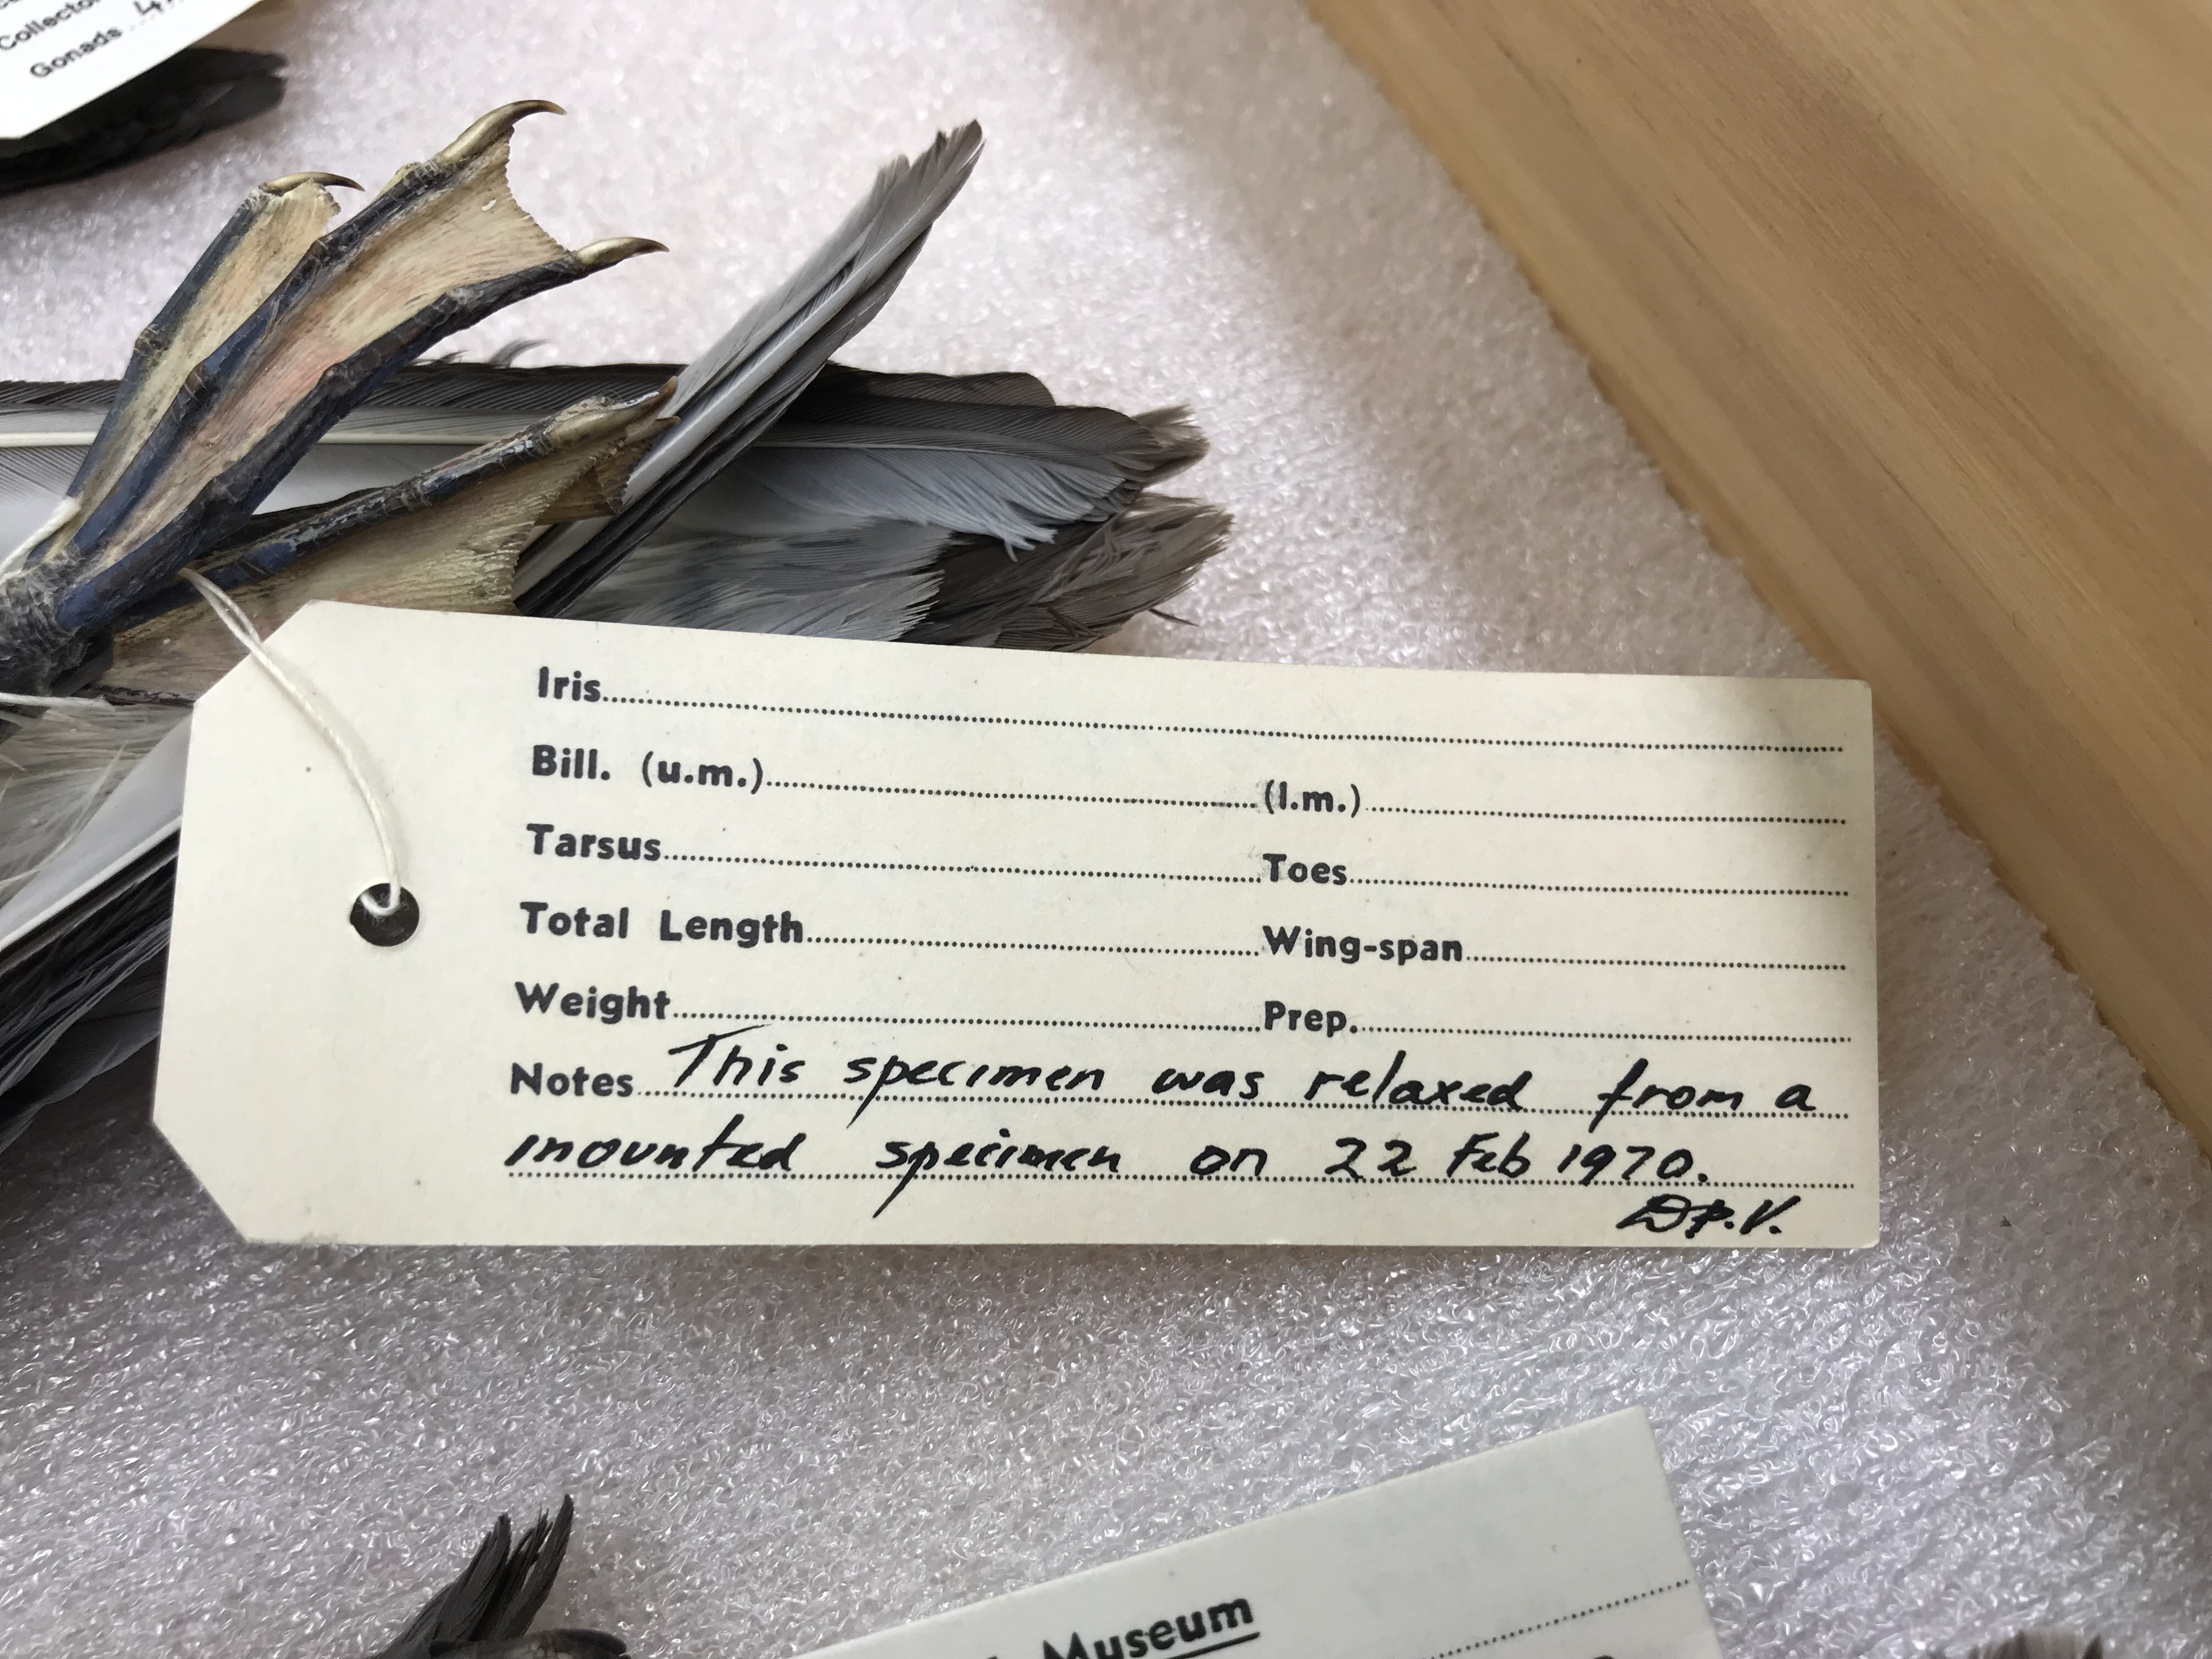 Iris
Bill. (u.m.) (l.m.)
Tarsus Toes
Total Length Wing-span
Weight Prep.
Notes This specimen was relaxed from a
mounted specimen on 22 Feb 1970.
Museum
Gonads